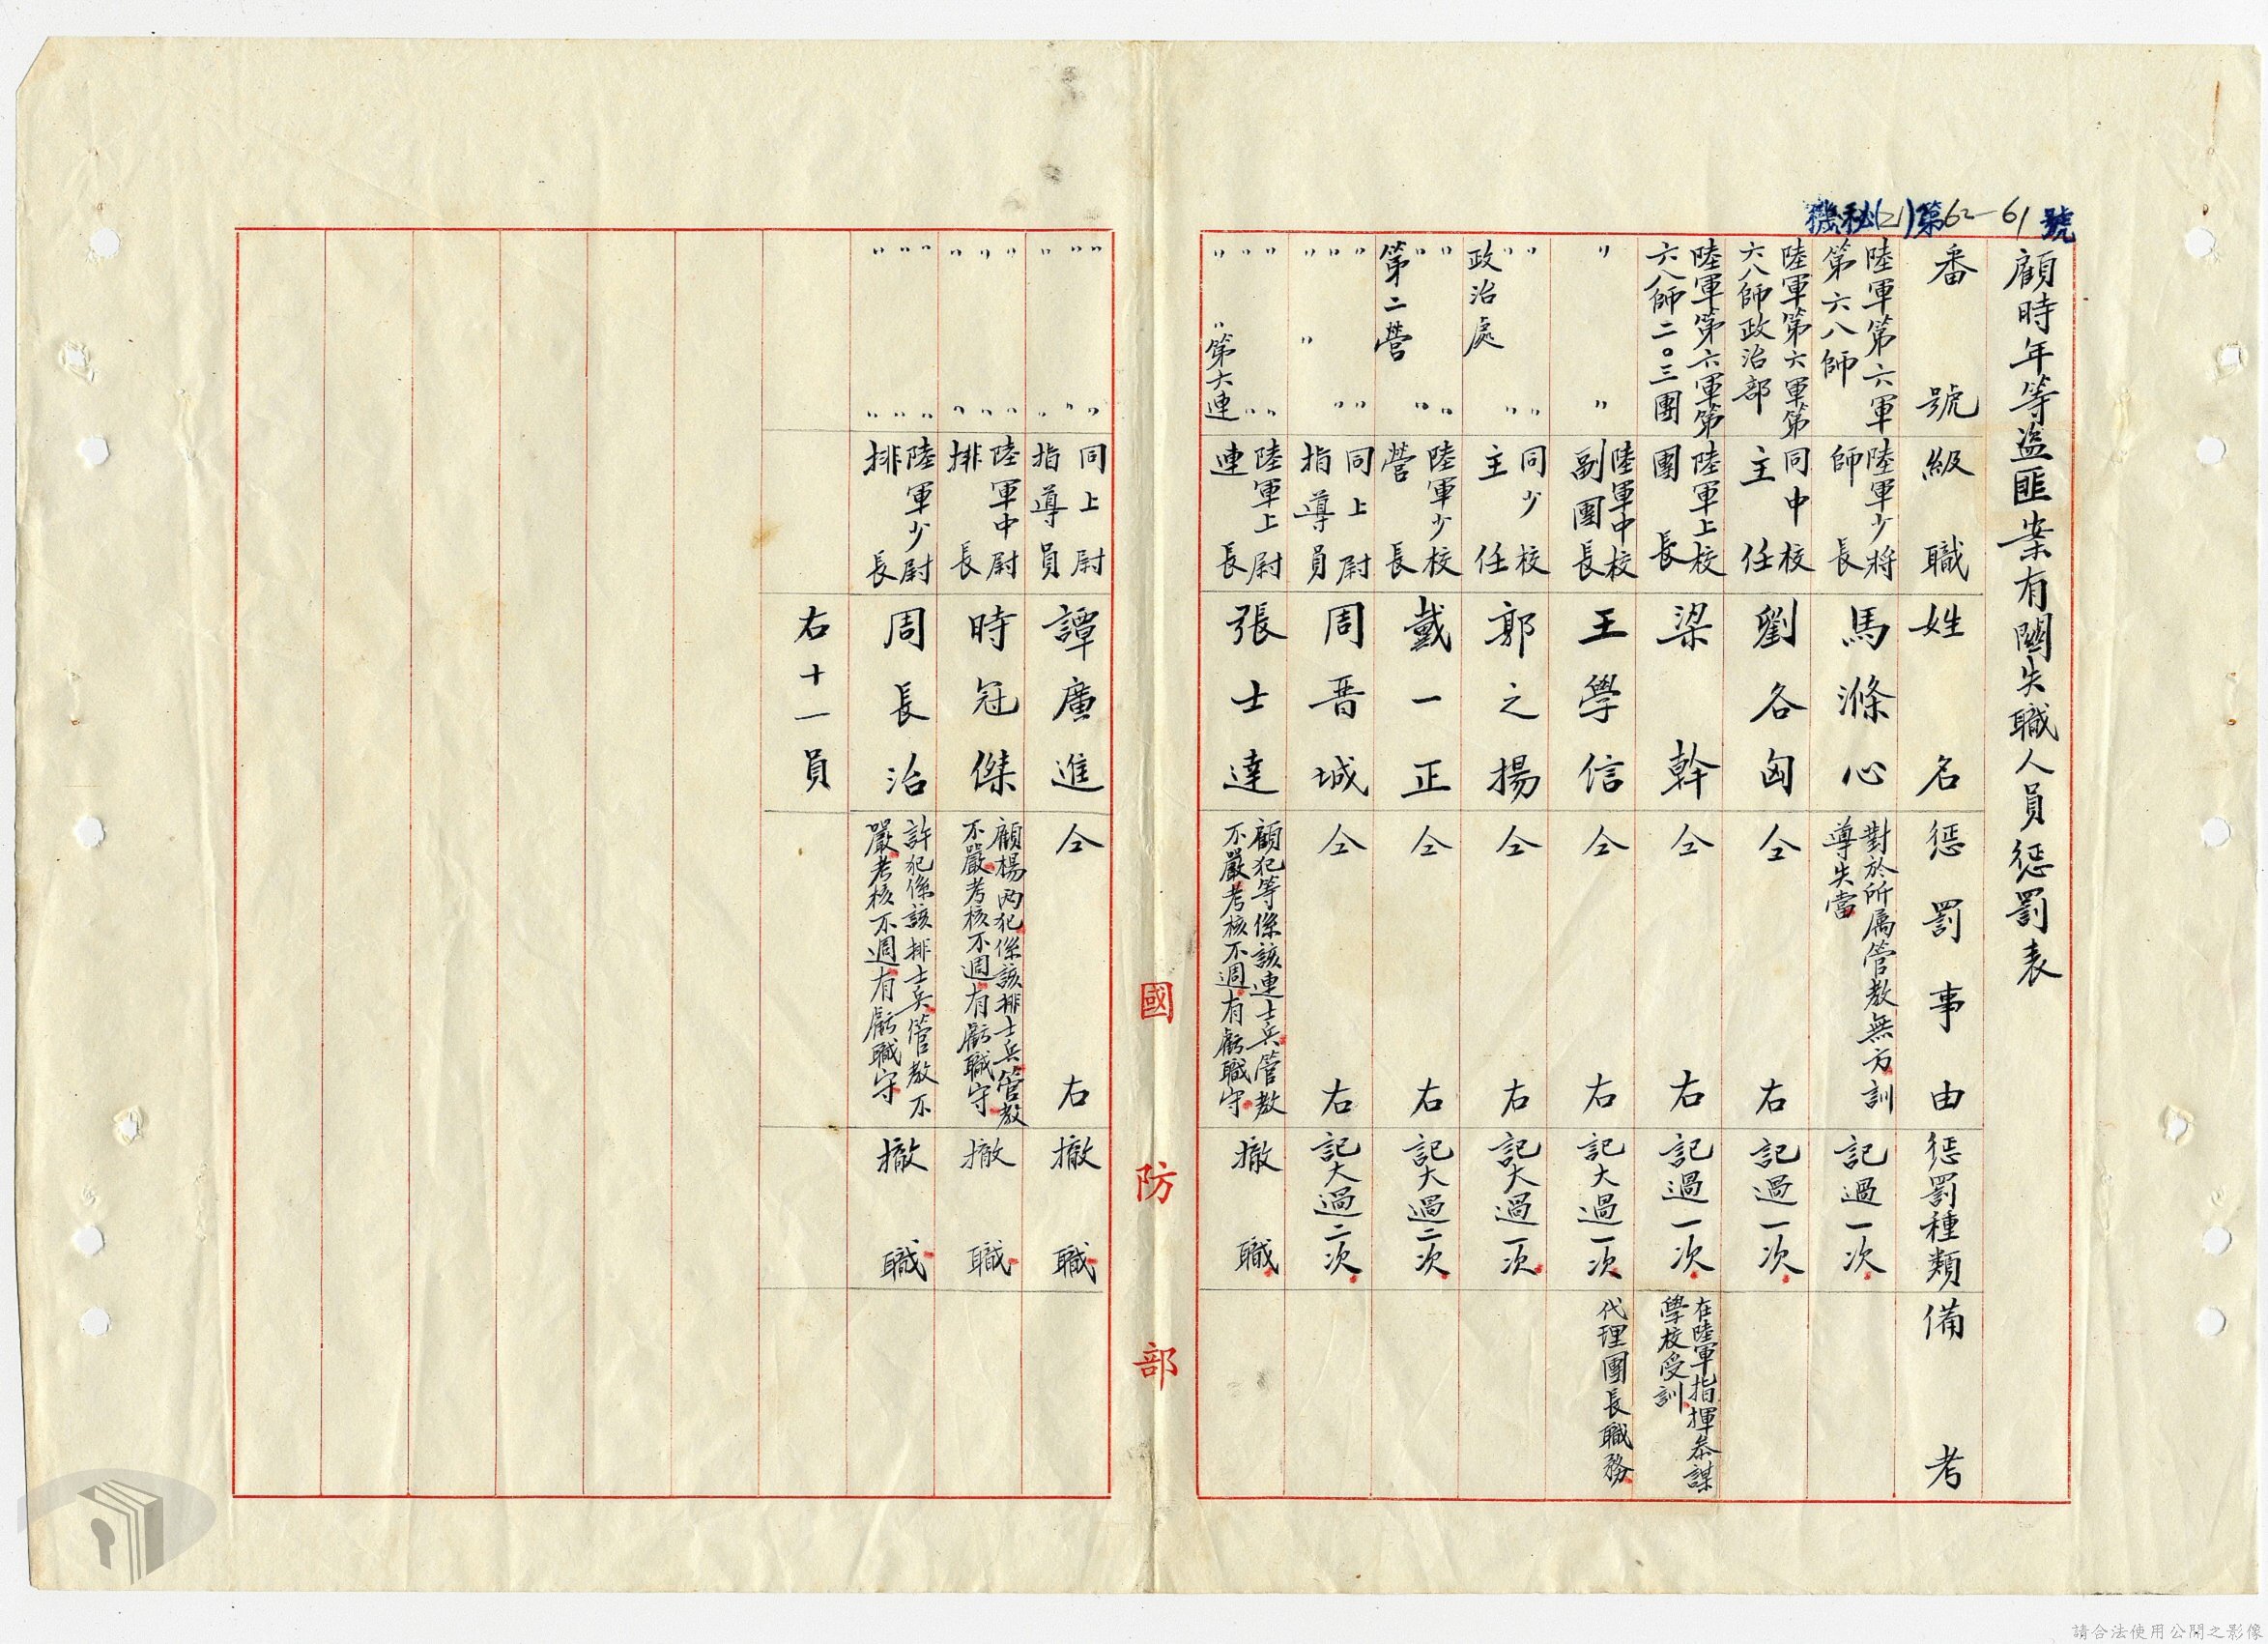 機秘(乙)第62-61號
顧時年等盜匪案有關失職人員懲罰表
番號 級職 姓名 懲罰事由 懲罰種類 備考
陸軍第六軍第六八師 陸軍少將師長 馬滌心 對於所属管教無方訓導失當 記過一次
陸軍第六軍第六八師政治部 同中校主任 劉各囪 仝右 記過一次
陸軍第六軍第六八師二〇三團 陸軍上校團長 梁幹 仝右 記過一次 在陸軍指揮叅謀學校受訓
〃 〃 陸軍中校副團長 王學信 仝右 記大過一次 代理團長職務
〃〃政治處 〃〃 同少校主任 郭之揚 仝右 記大過一次
〃〃第二營 〃〃 陸軍少校營長 戴一正 仝右 記大過二次
〃〃〃 〃 〃〃 同上尉指導員 周晋城 仝右 記大過二次
〃〃〃 〃第六連 〃〃 陸軍上尉連長 張士達 顧犯等係該連士兵管教不嚴考核不週有虧職守 撤職
〃〃〃 〃〃〃 同上尉指導員 譚廣進 仝右 撤職
〃〃〃 〃〃〃 陸軍中尉排長 時冠傑 顧楊兩犯係該排士兵管教不嚴考核不週有虧職守 撤職
〃〃〃 〃〃〃 陸軍少尉排長 周長治 許犯係該排士兵管教不嚴考核不週有虧職守 撤職
右十一員
國防部
請合法使用公開之影像